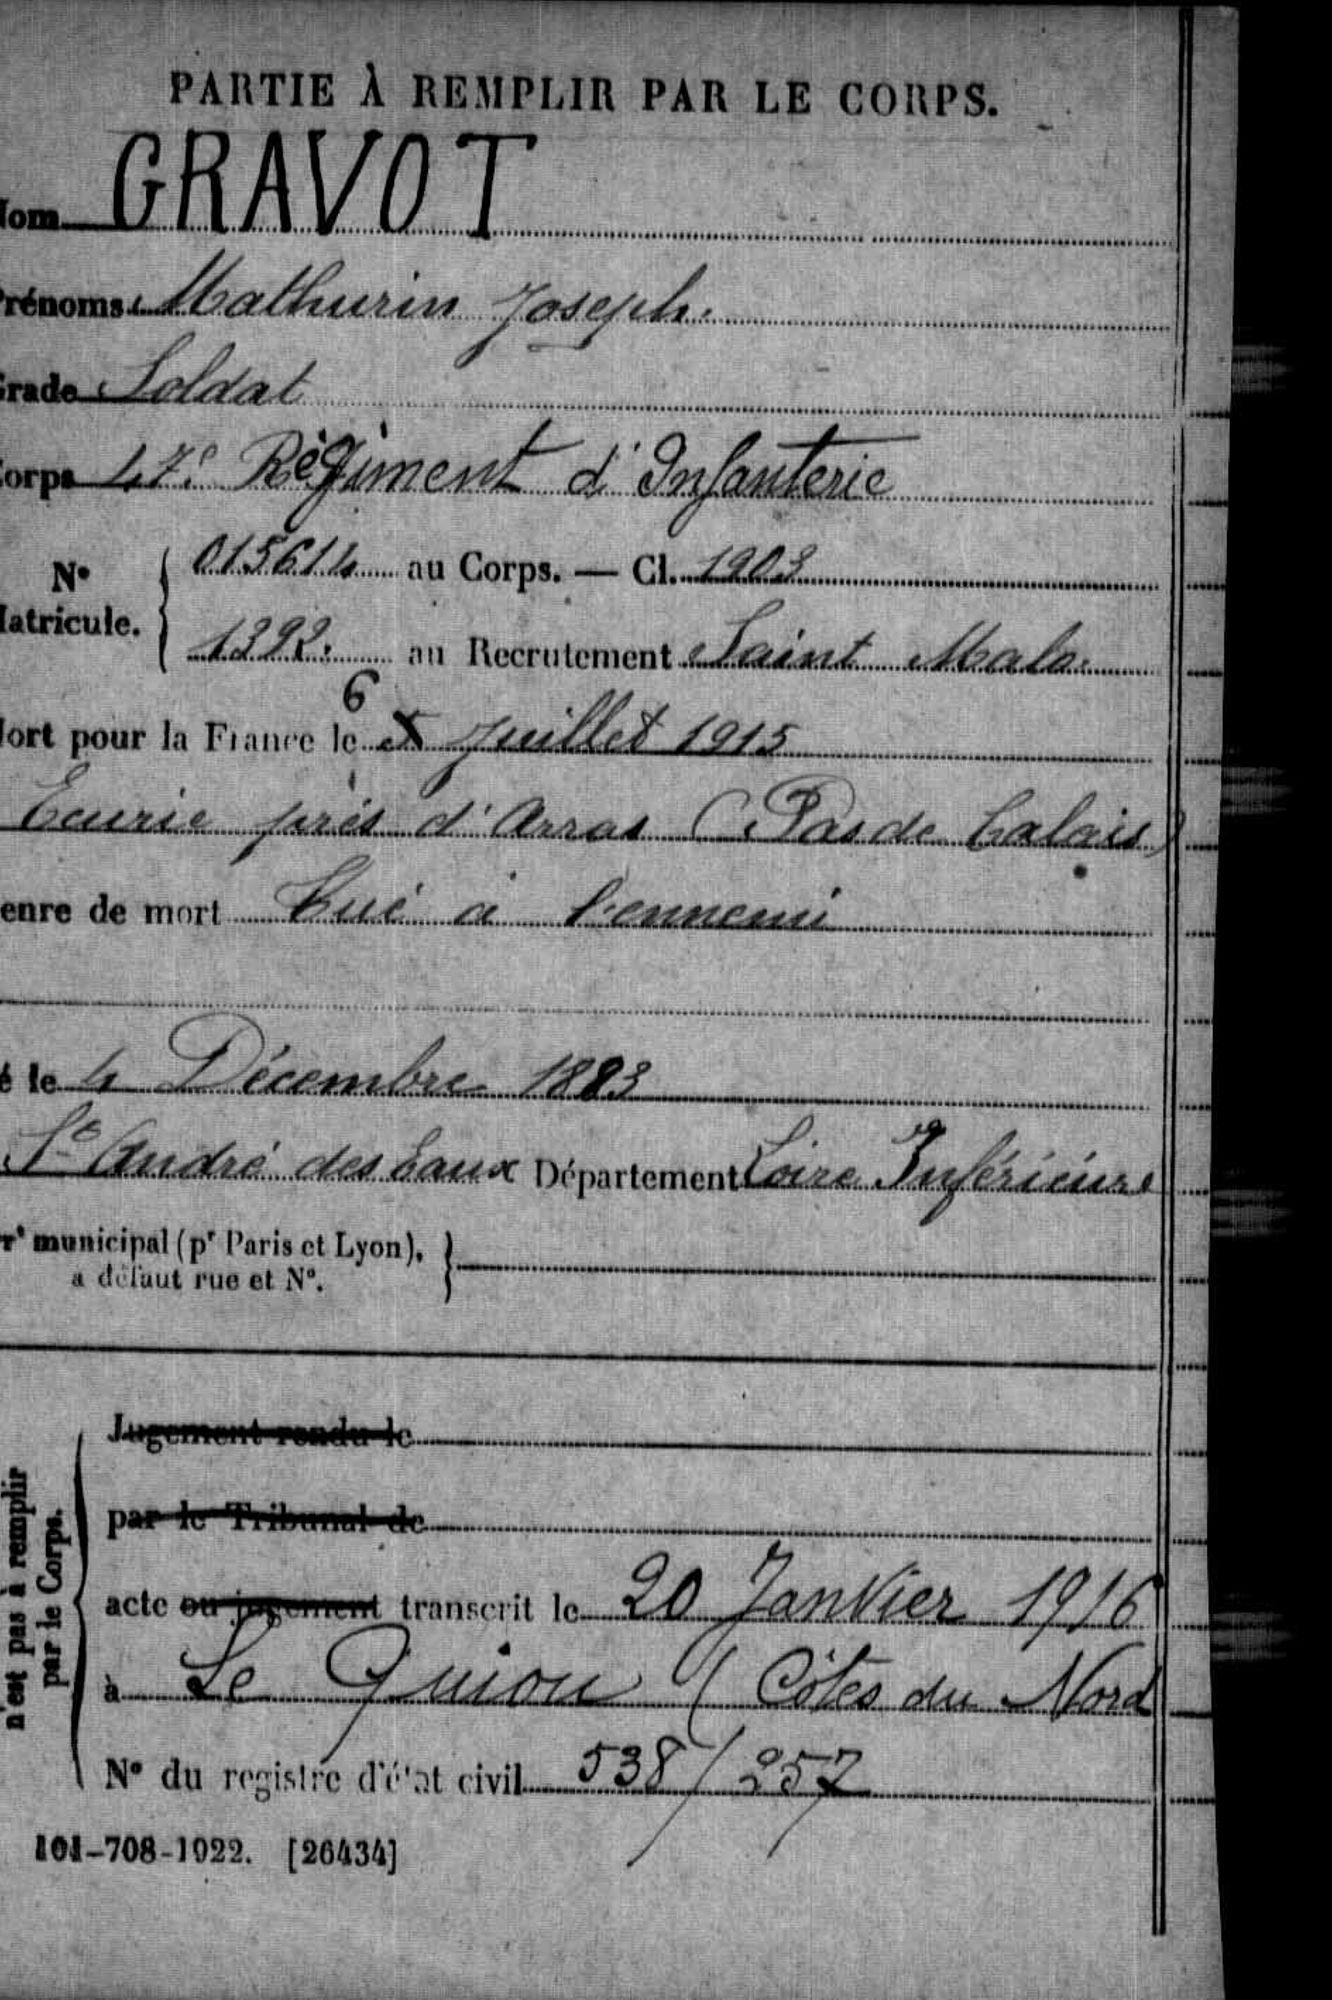 PARTIE À REMPLIR PAR LE CORPS.
Nom GRAVOT
Prénoms Mathurin Joseph.
Grade Soldat
Corps 47e Régiment d'Infanterie
N° Matricule. { 015614 au Corps. — Cl. 1903
1392. au Recrutement Saint Malo.
6
Mort pour la France le 5 Juillet 1915
Ecurie près d'Arras (Pas de Calais)
enre de mort Tué à l'ennemi
é le 4 Décembre 1883
St André des Eaux Département Loire Inférieure
rt municipal (pr Paris et Lyon), }
a défaut rue et N°.
n'est pas à remplir
par le Corps.
Jugement rendu le
par le Tribunal de
acte ou jugement transcrit le 20 Janvier 1916
à Le Quiou (Côtes du Nord
N° du registre d'état civil 538/257
101-708-1922. [26434]